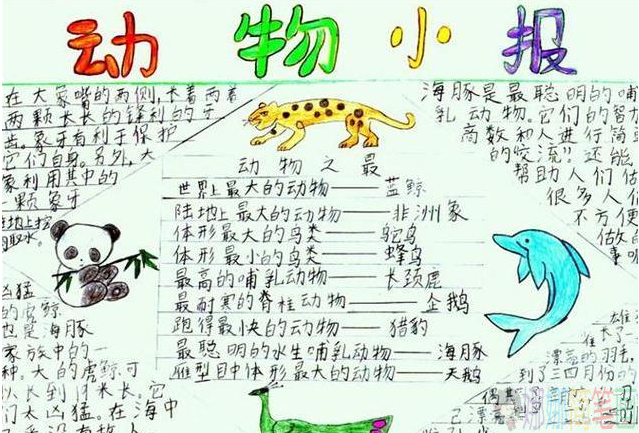 动物小报
在大象嘴的两侧,长着两
两颗长长的锋利的牙
齿。象牙有利于保护
它们自身。另外,大
象利用其中的
一颗象牙
取水。
海豚是最聪明的哺
乳动物。它们的智力
商数和人进行简
的交流!!还能
帮助人们做
很多人们
不方便
做的
事
动物之最
世界上最大的动物——蓝鲸
陆地上最大的动物——非洲象
体形最大的鸟类——鸵鸟
体形最小的鸟类——蜂鸟
最高的哺乳动物——长颈鹿
最耐寒的脊柱动物——企鹅
跑得最快的动物——猎豹
最聪明的水生哺乳动物——海豚
雁型目中体形最大的动物——天鹅
凶猛
的虎鲸
也是海豚
家族中的一
种。大的虎鲸可
以长到10米长。它
们太凶猛。在海中
长了一
漂亮的羽
到了三四月份的